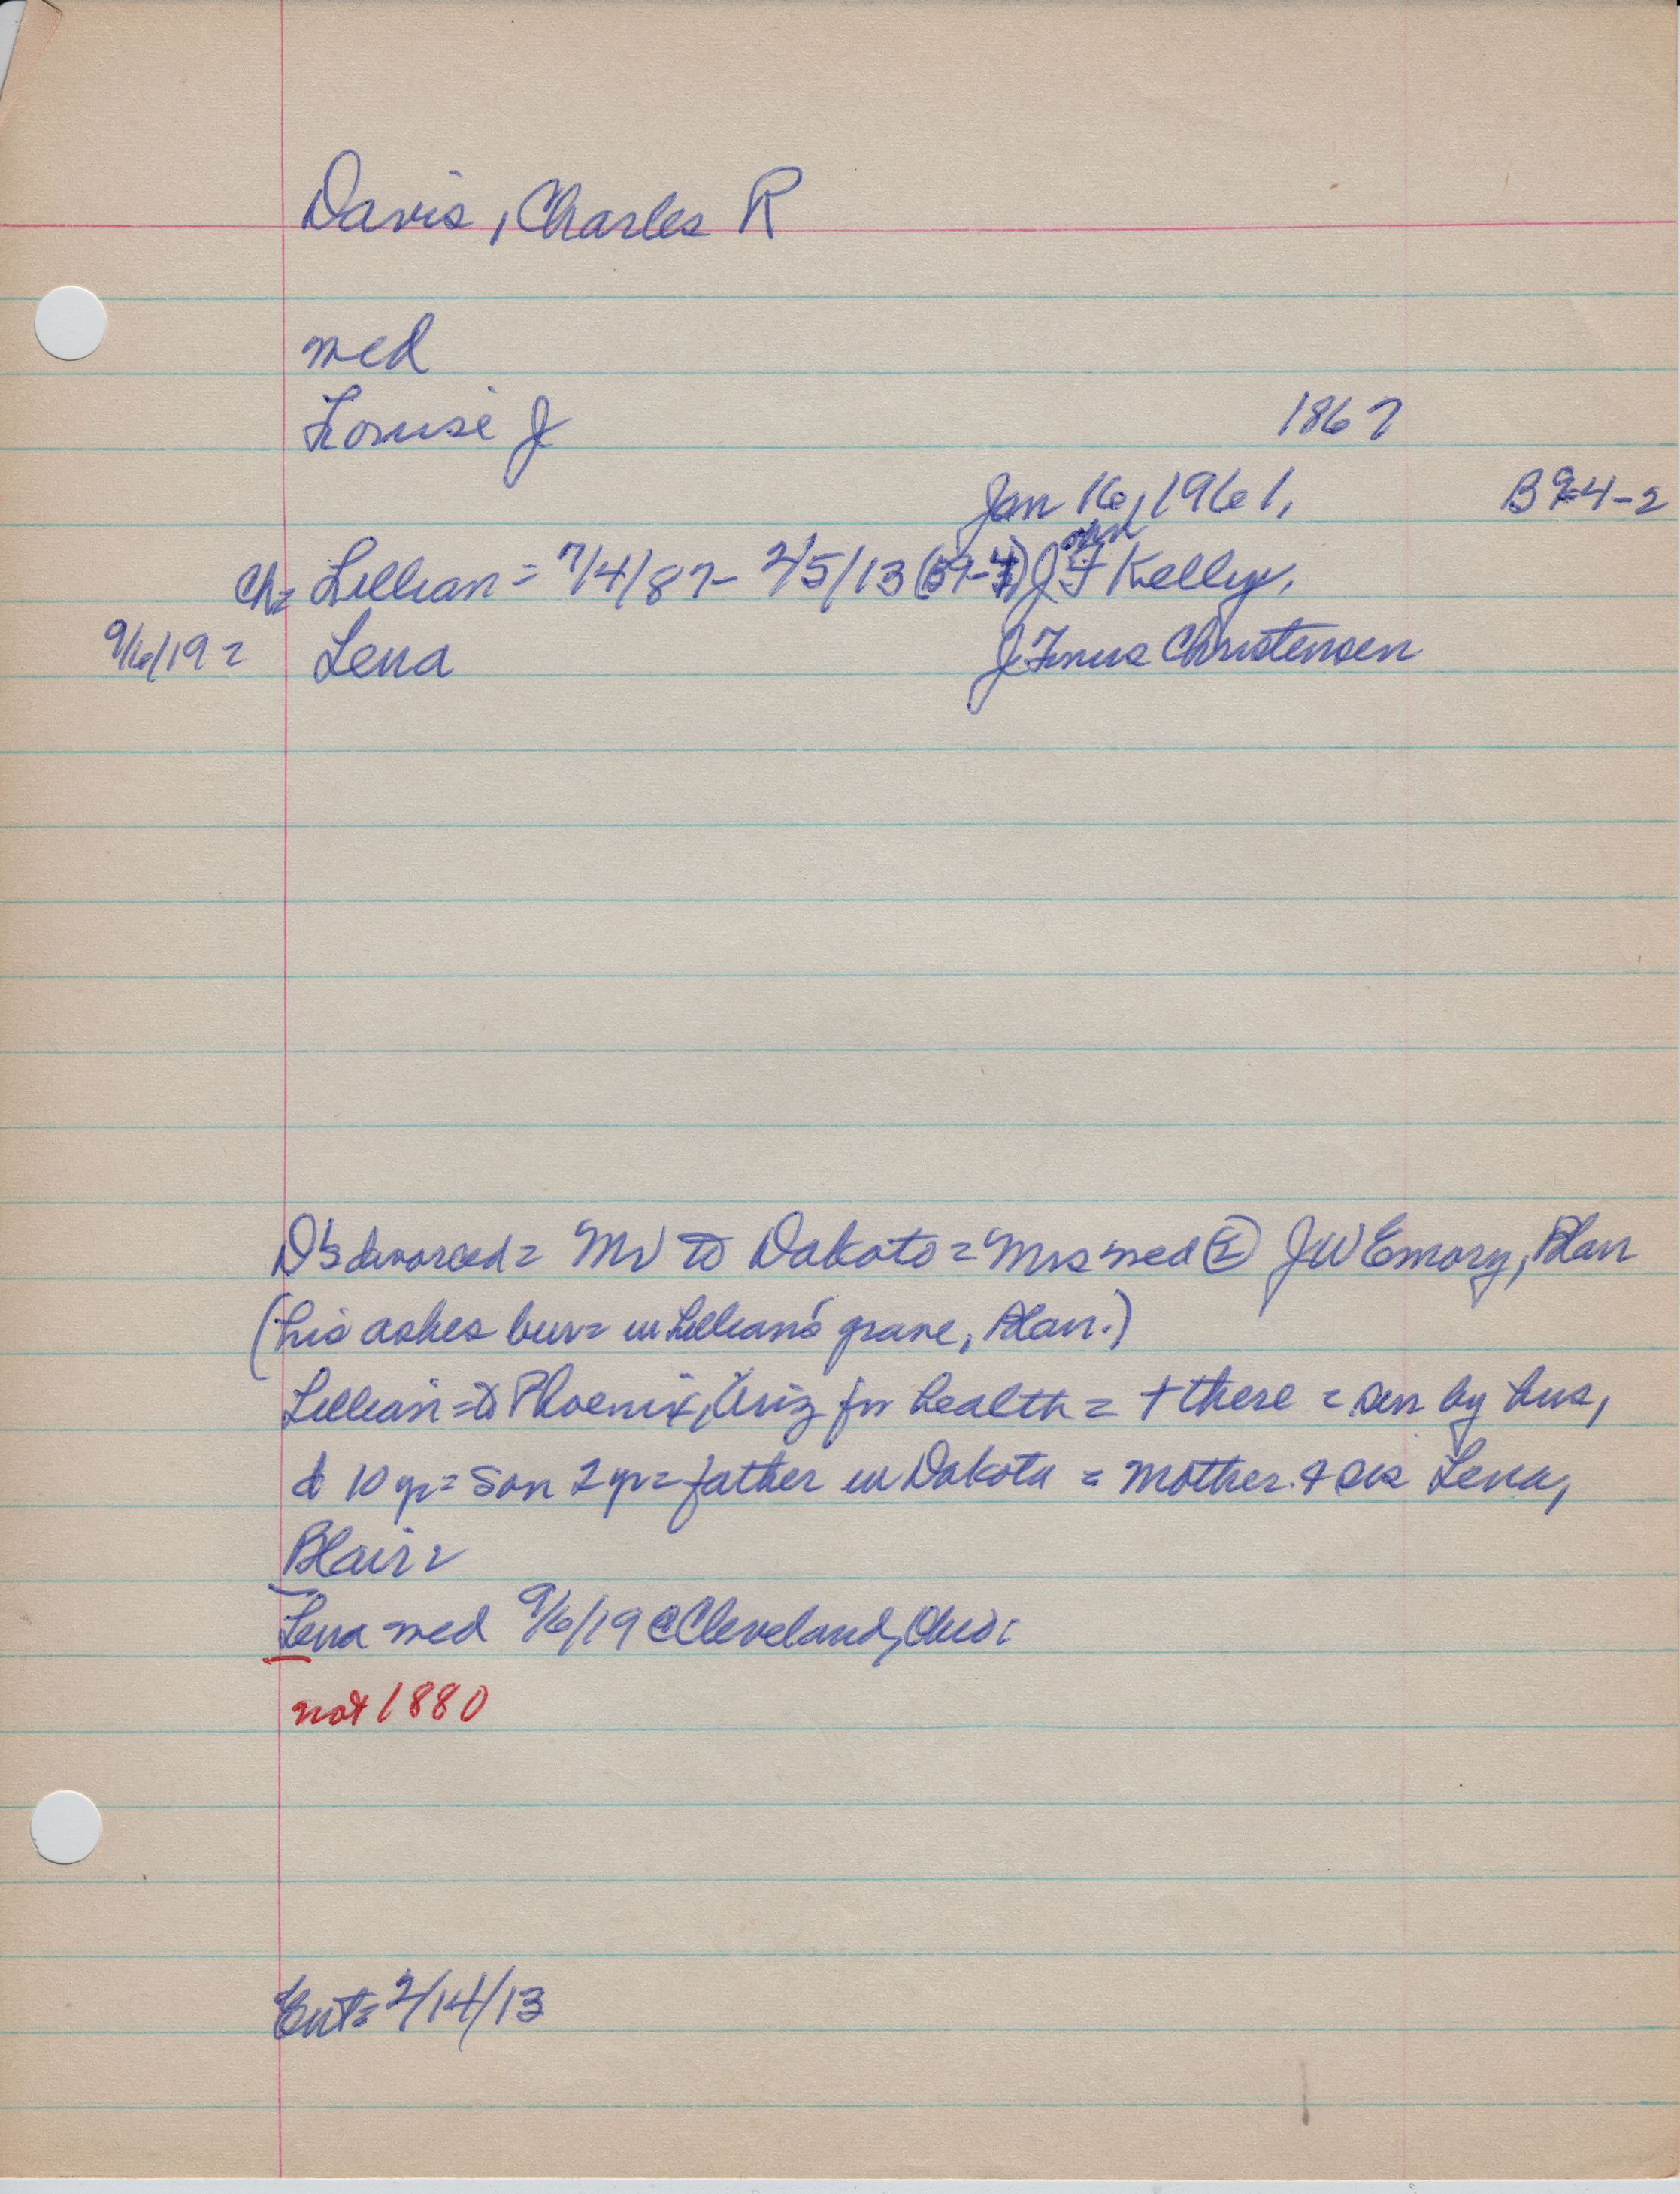 Davis, Charles R
med
Louise J 1867
Jan 16, 1961, B 4-2
Ch= Lillian = 7/4/87- 2/5/13 J F Kelly,
9/6/19 = Lena J Christensen
D's divorced = Mr to Dakota = Mrs med ② JW Emory, Blair
(his ashes bur= in Lillian's grave, Blair.)
Lillian = to Phoenix, Ariz for health = + there = sur by hus,
d 10 yr = son 2 yr = father in Dakota = mother & sis Lena,
Blair =
Lena med 9/6/19 @ Cleveland, Ohio =
not 1880
Ent= 2/14/13